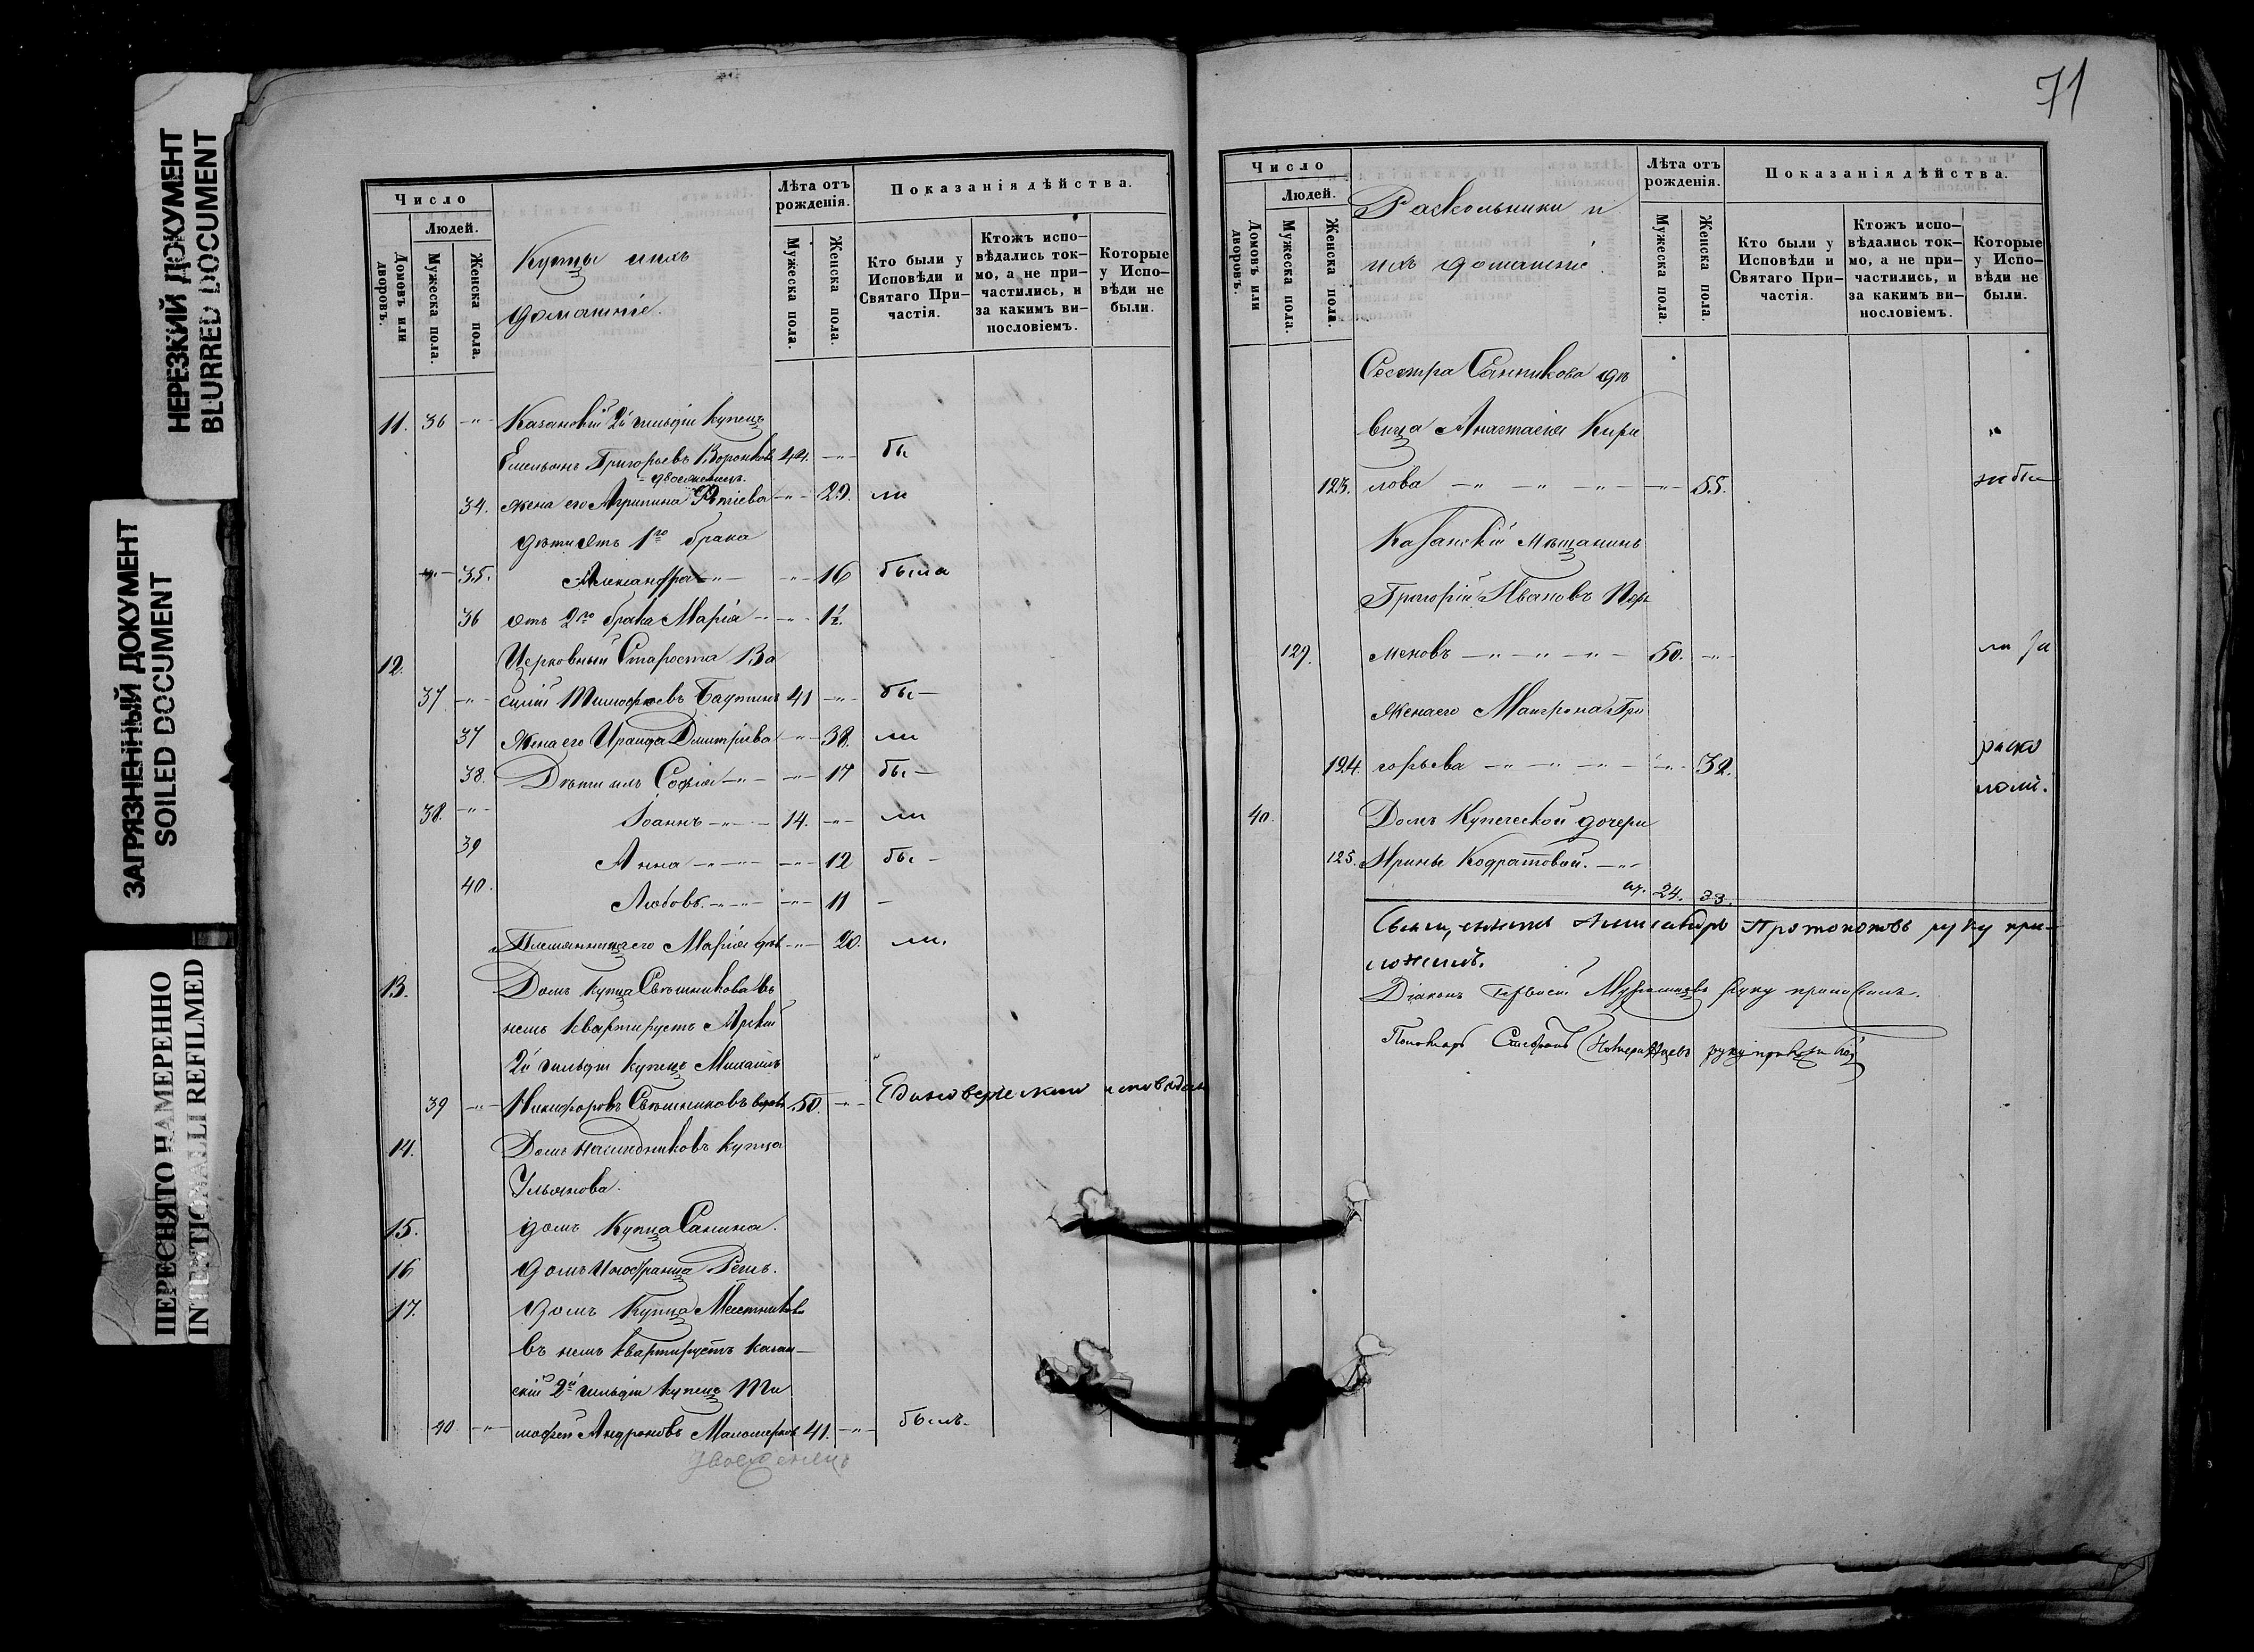 НЕРЕЗКИЙ ДОКУМЕНТ
BLURRED DOCUMENT
ЗАГРЯЗНЕННЫЙ ДОКУМЕНТ
SOILED DOCUMENT
ПЕРЕСНЯТО НАМЕРЕННО
INTENTIONALLI REFILMED
Число
Людей.
Домовъ или дворовъ.
Мужеска пола.
Женска пола.
Купцы и ихъ
домашніе.
Лѣта отъ рожденія.
Мужеска пола.
Женска пола.
Показанія дѣйства.
Кто были у Исповѣди и Святаго При-частія.
Ктожъ испо-вѣдались ток-мо, а не при-частились, и за какимъ ви-нословіемъ.
Которые у Испо-вѣди не были.
11. 36 -"- Казанскій 2й гильдіи купецъ
Емельянъ Григорьевъ Воронковъ 44. -"- бы
двоеженецъ.
34. жена его Агрипина -"- 29. ли
дѣти отъ 1го брака
-"- 35. Александра -"- -"- 16 была
36 отъ 2го брака Марія -"- -"- 1½.
12. Церковный Староста Ва
37 -"- силій Тимофѣевъ 41 -"- бы-
37 Жена его Ираида Димитріева -"- 38. ли
38. Дѣти ихъ Софія -"- -"- 17 бы-
38. -"- Іоаннъ -"- 14. -"- ли
39 Анна -"- -"- 12 бы-
40. Любовь. -"- -"- 11 -
Племянница его Марія -"- 20. ли.
13. Домъ купца Свѣшникова въ
немъ квартируетъ Арскій
2й гильдіи купецъ Михаилъ
39 -"- Никифоровъ Свѣшниковъ 50. -"-
14. Домъ наслѣдниковъ купца
Ульянова.
15. домъ Купца Санина.
16 домъ Иностранца
17. домъ Купца
въ немъ квартируетъ казан-
скій 2й гильдіи купецъ Ти
40 -"- мофей Андроновъ 41. -"- былъ.
двоеженецъ
71
Число
Людей.
Домовъ или дворовъ.
Мужеска пола.
Женска пола.
Раскольники и
ихъ домашніе.
Лѣта отъ рожденія.
Мужеска пола.
Женска пола.
Показанія дѣйства.
Кто были у Исповѣди и Святаго При-частія.
Ктожъ испо-вѣдались ток-мо, а не при-частились, и за какимъ ви-нословіемъ.
Которые у Испо-вѣди не были.
Сестра Санникова дѣ
вица Анастасія Кири
123. лова -"- -"- -"- -"- 55. не бы
Казанскій Мѣщанинъ
Григорій Ивановъ
129. меновъ -"- -"- -"- 50. -"- ли за
Жена его Матрона Гри
124. горьева -"- -"- -"- -"- 32. раско
ломъ.
40. Домъ Купеческой дочери
125. Ирины Кодратовой. -"-
24. 33.
Священникъ Александръ Протопоповъ руку при-
ложилъ.
Діаконъ руку приложилъ.
Пономарь руку приложилъ